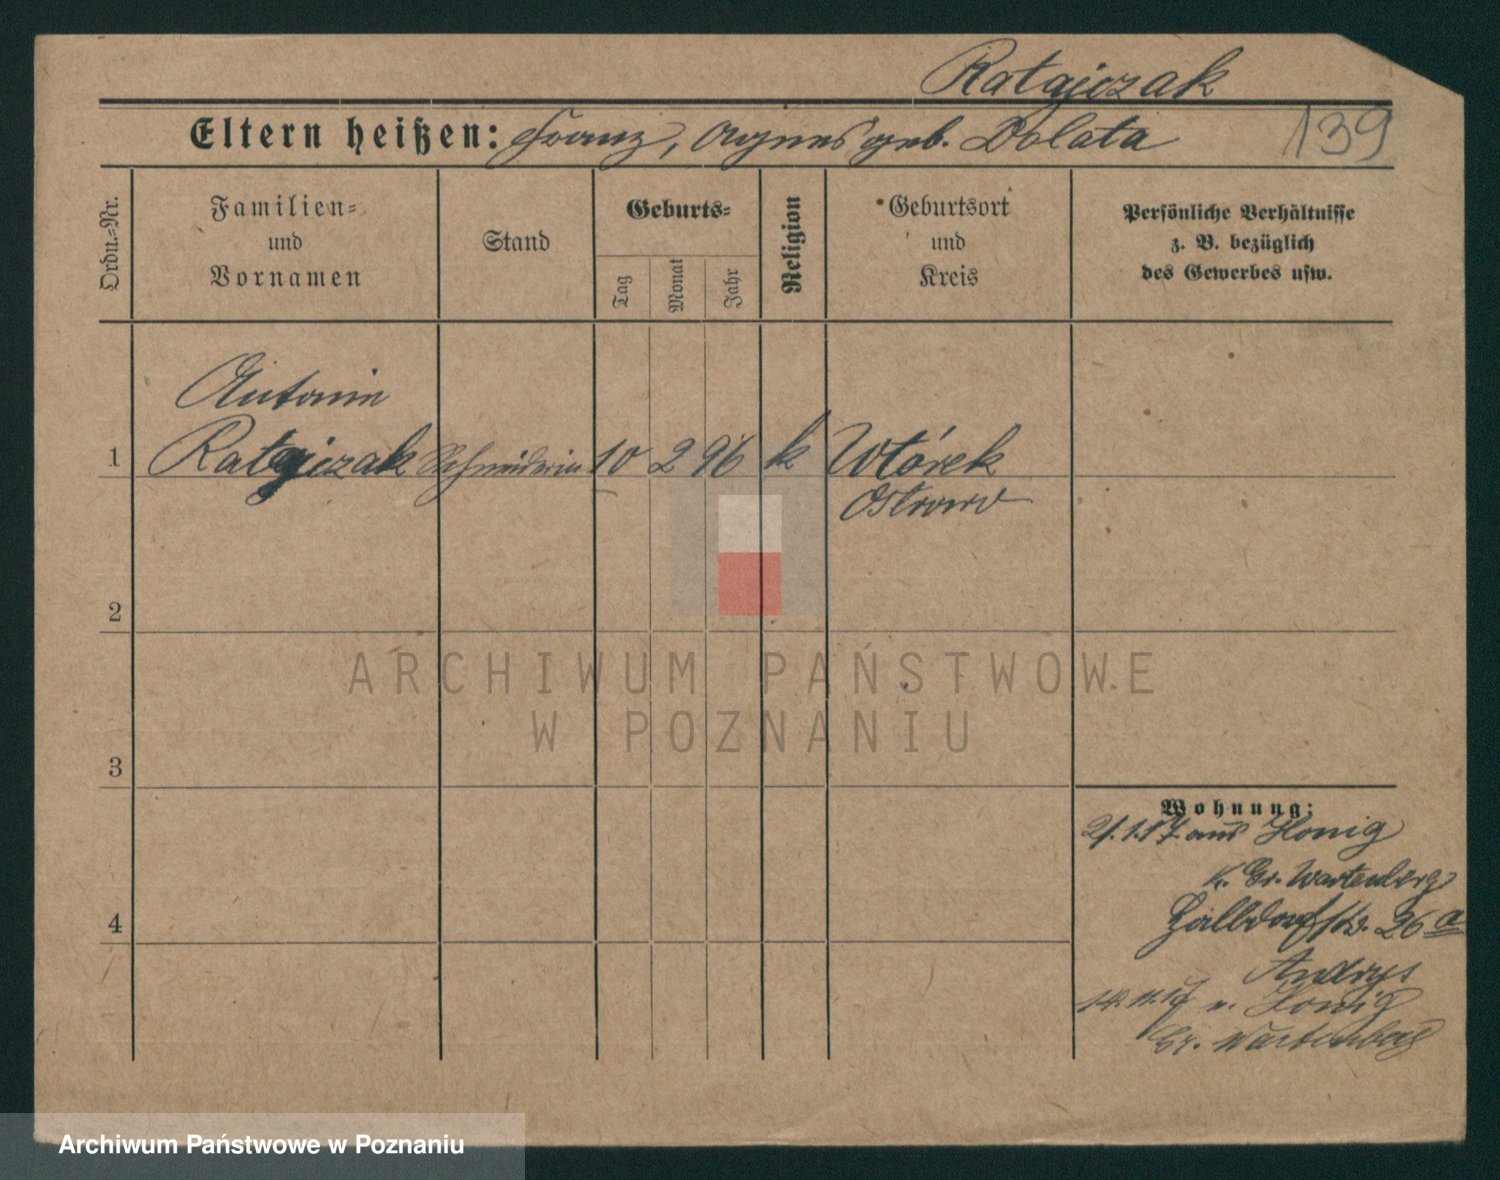 Ratajczak
Eltern heißen: Franz, Agnes geb. Dolata
139
Ordn.=Nr.
Familien=
und
Vornamen
Stand
Geburts=
Tag
Monat
Jahr
Religion
Geburtsort
und
Kreis
Persönliche Verhältnisse
z. B. bezüglich
des Gewerbes usw.
Antonie
1 Ratajczak Schneiderin 10 2 96 k Wtórek
Ostrowo
2
ARCHIWUM PAŃSTWOWE
W POZNANIU
3
Wohnung:
2/.1.17. aus Honig
Kr. Gr. Wartenberg
Halbdorfstr. 26a
Andrys
14.11.17 n. Honig
Gr. Wartenberg
4
Archiwum Państwowe w Poznaniu